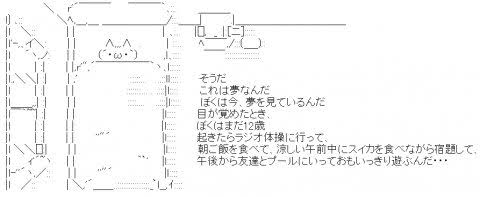 そうだ
これは夢なんだ
ぼくは今、夢を見ているんだ
目が覚めたとき、
ぼくはまだ12歳
起きたらラジオ体操に行って、
朝ご飯を食べて、涼しい午前中にスイカを食べながら宿題して、
午後から友達とプールにいっておもいっきり遊ぶんだ・・・